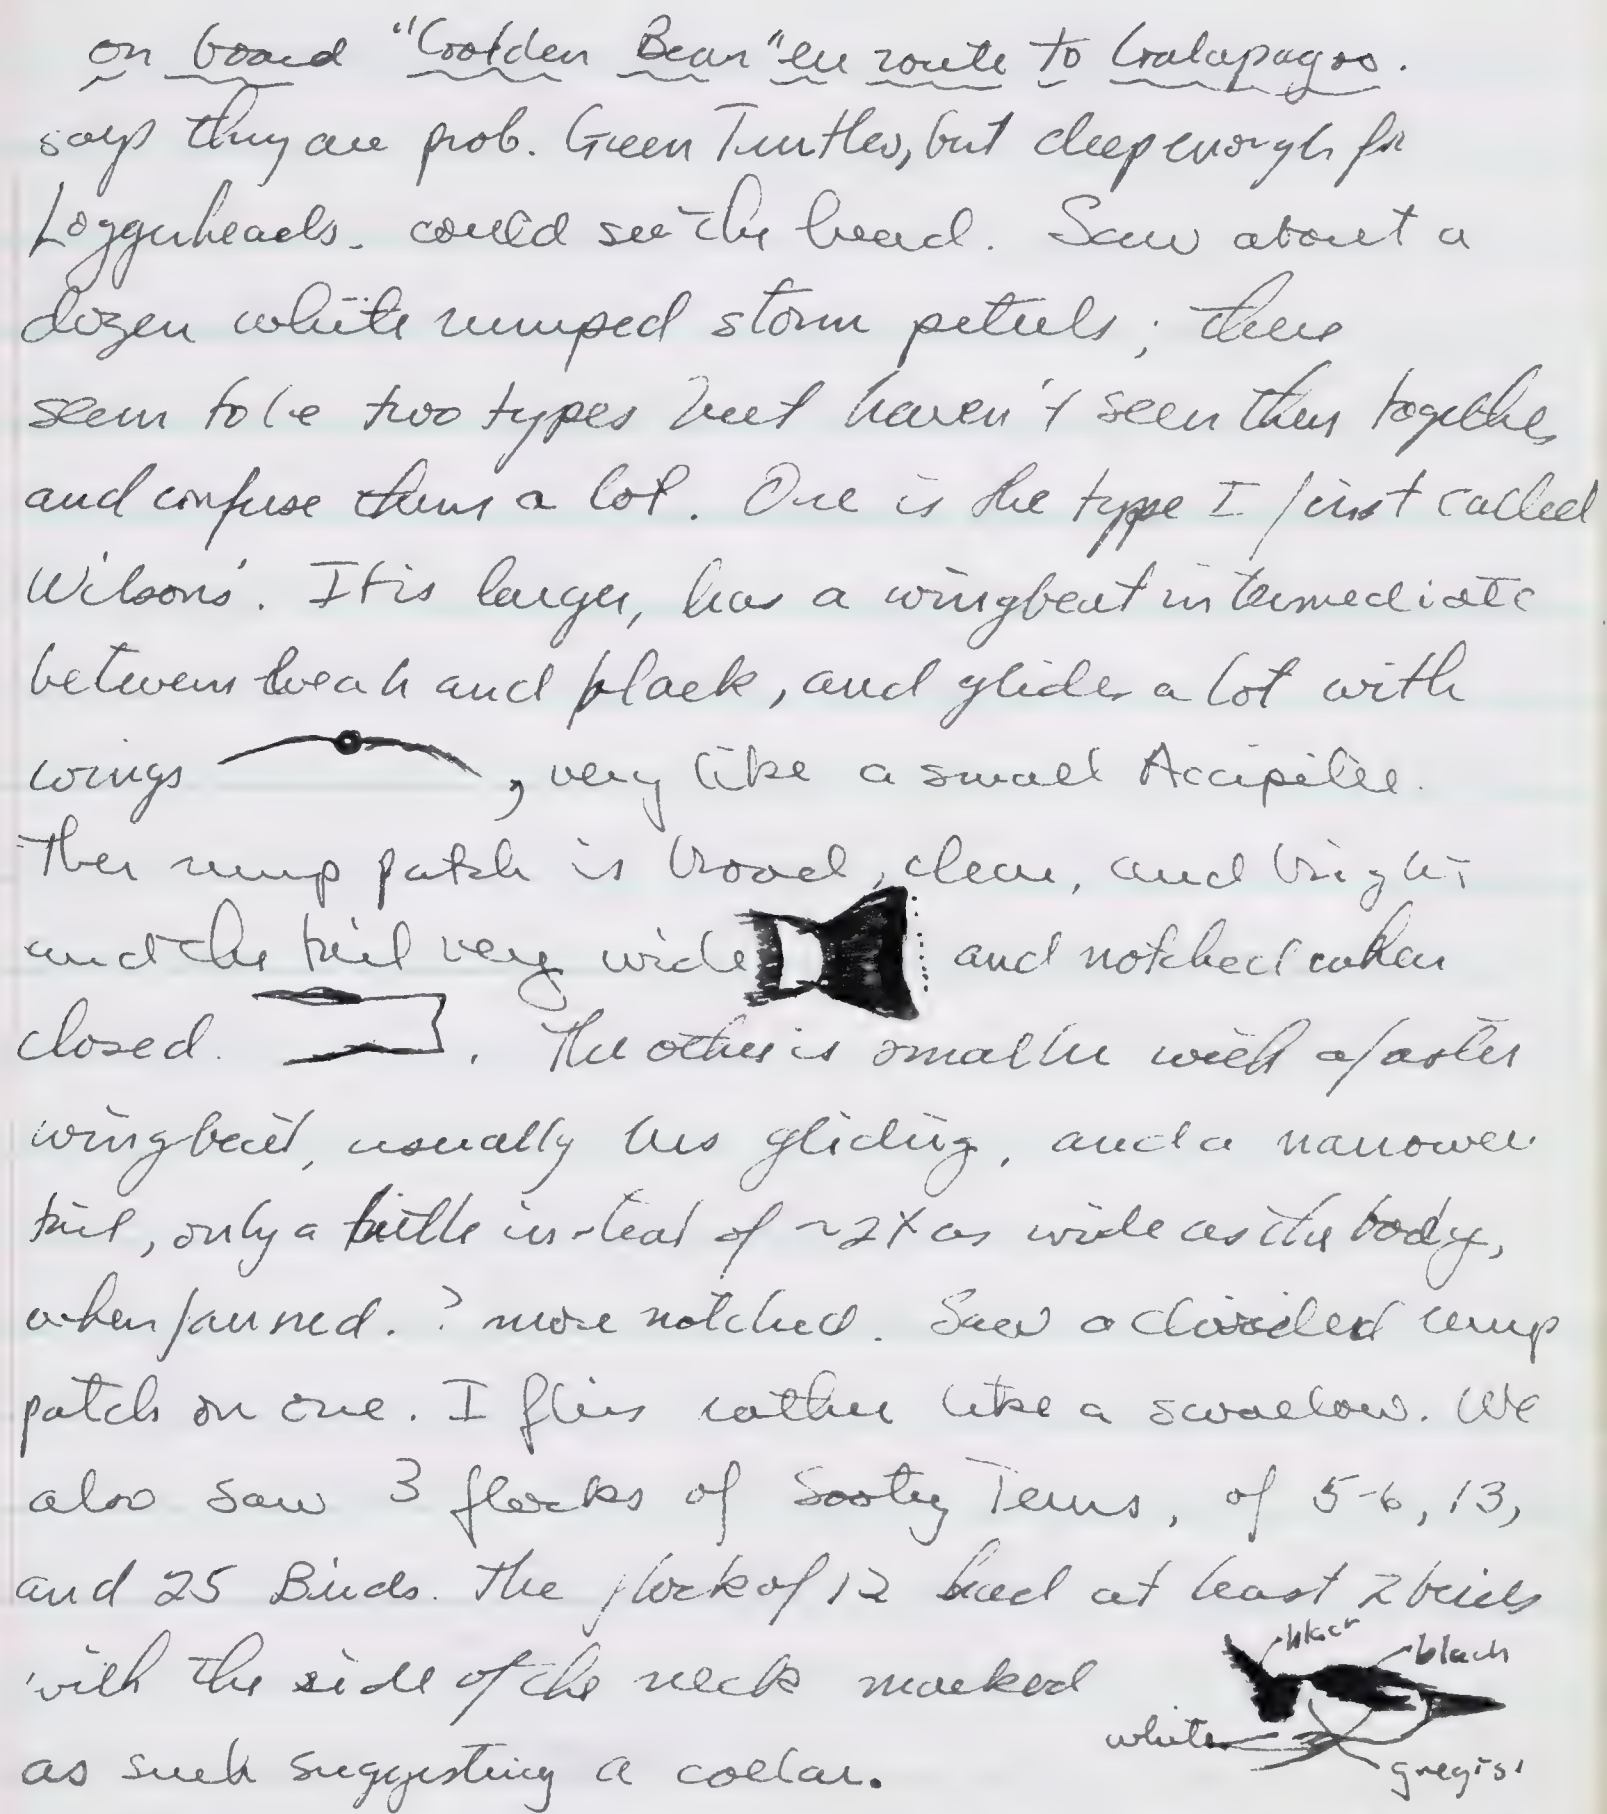 on board "Golden Bear" en route to Galapagos.
says they are prob. Green Turtles, but deep enough for
Loggerheads. could see the head. Saw about a
dozen white rumped storm petrels; there
seem to be two types but haven't seen them together
and confuse them a lot. One is the type I first called
Wilsons'. It is larger, has a wingbeat intermediate
between Leach and black, and glides a lot with
wings , very like a small Accipiter.
The rump patch is broad, clear, and bright
and the tail very wide and notched when
closed. . The other is smaller with a faster
wingbeat, usually less gliding, and a narrower
tail, only a little instead of ~2X as wide as the body,
when fanned. ? more notched. Saw a divided rump
patch on one. I flies rather like a swallow. We
also saw 3 flocks of Sooty Terns, of 5-6, 13,
and 25 Birds. The flock of 12 had at least 2 birds
with the side of the neck marked
as such suggesting a collar.
black
black
white